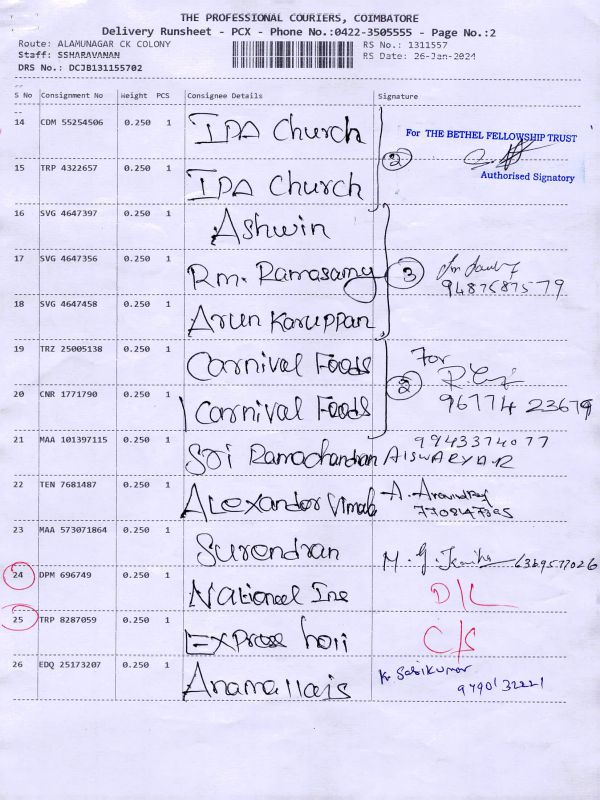 THE PROFESSIONAL COURIERS, COIMBATORE
Delivery Runsheet - PCX - Phone No.:0422-3505555 - Page No.:2
Route: ALAMUNAGAR CK COLONY
RS No.: 1311557
Staff: SSHARAVANAN
RS Date: 26-Jan-2024
DRS No.: DCJB131155702
S No Consignment No Weight PCS Consignee Details Signature
14 CDM 55254506 0.250 1 IPA Church
For THE BETHEL FELLOWSHIP TRUST
2
Authorised Signatory
15 TRP 4322657 0.250 1 IPA Church
16 SVG 4647397 0.250 1 Ashwin
17 SVG 4647356 0.250 1 Rm. Ramasamy 3
9487587579
18 SVG 4647458 0.250 1 Arun Karuppan
19 TRZ 25005138 0.250 1 Carnival Foods For
2
20 CNR 1771790 0.250 1 Carnival Foods 96774 23679
21 MAA 101397115 0.250 1 Sri Ramachandran 9943374077
AISWARYA.R
22 TEN 7681487 0.250 1 Alexander Vimal A. Aravindraj
7708147395
23 MAA 573071864 0.250 1 Surendran M. 6369577026
24 DPM 696749 0.250 1 National Ins D/L
25 TRP 8287059 0.250 1 C/S
26 EDQ 25173207 0.250 1 Anamallais K. Sasikumar
9790132221